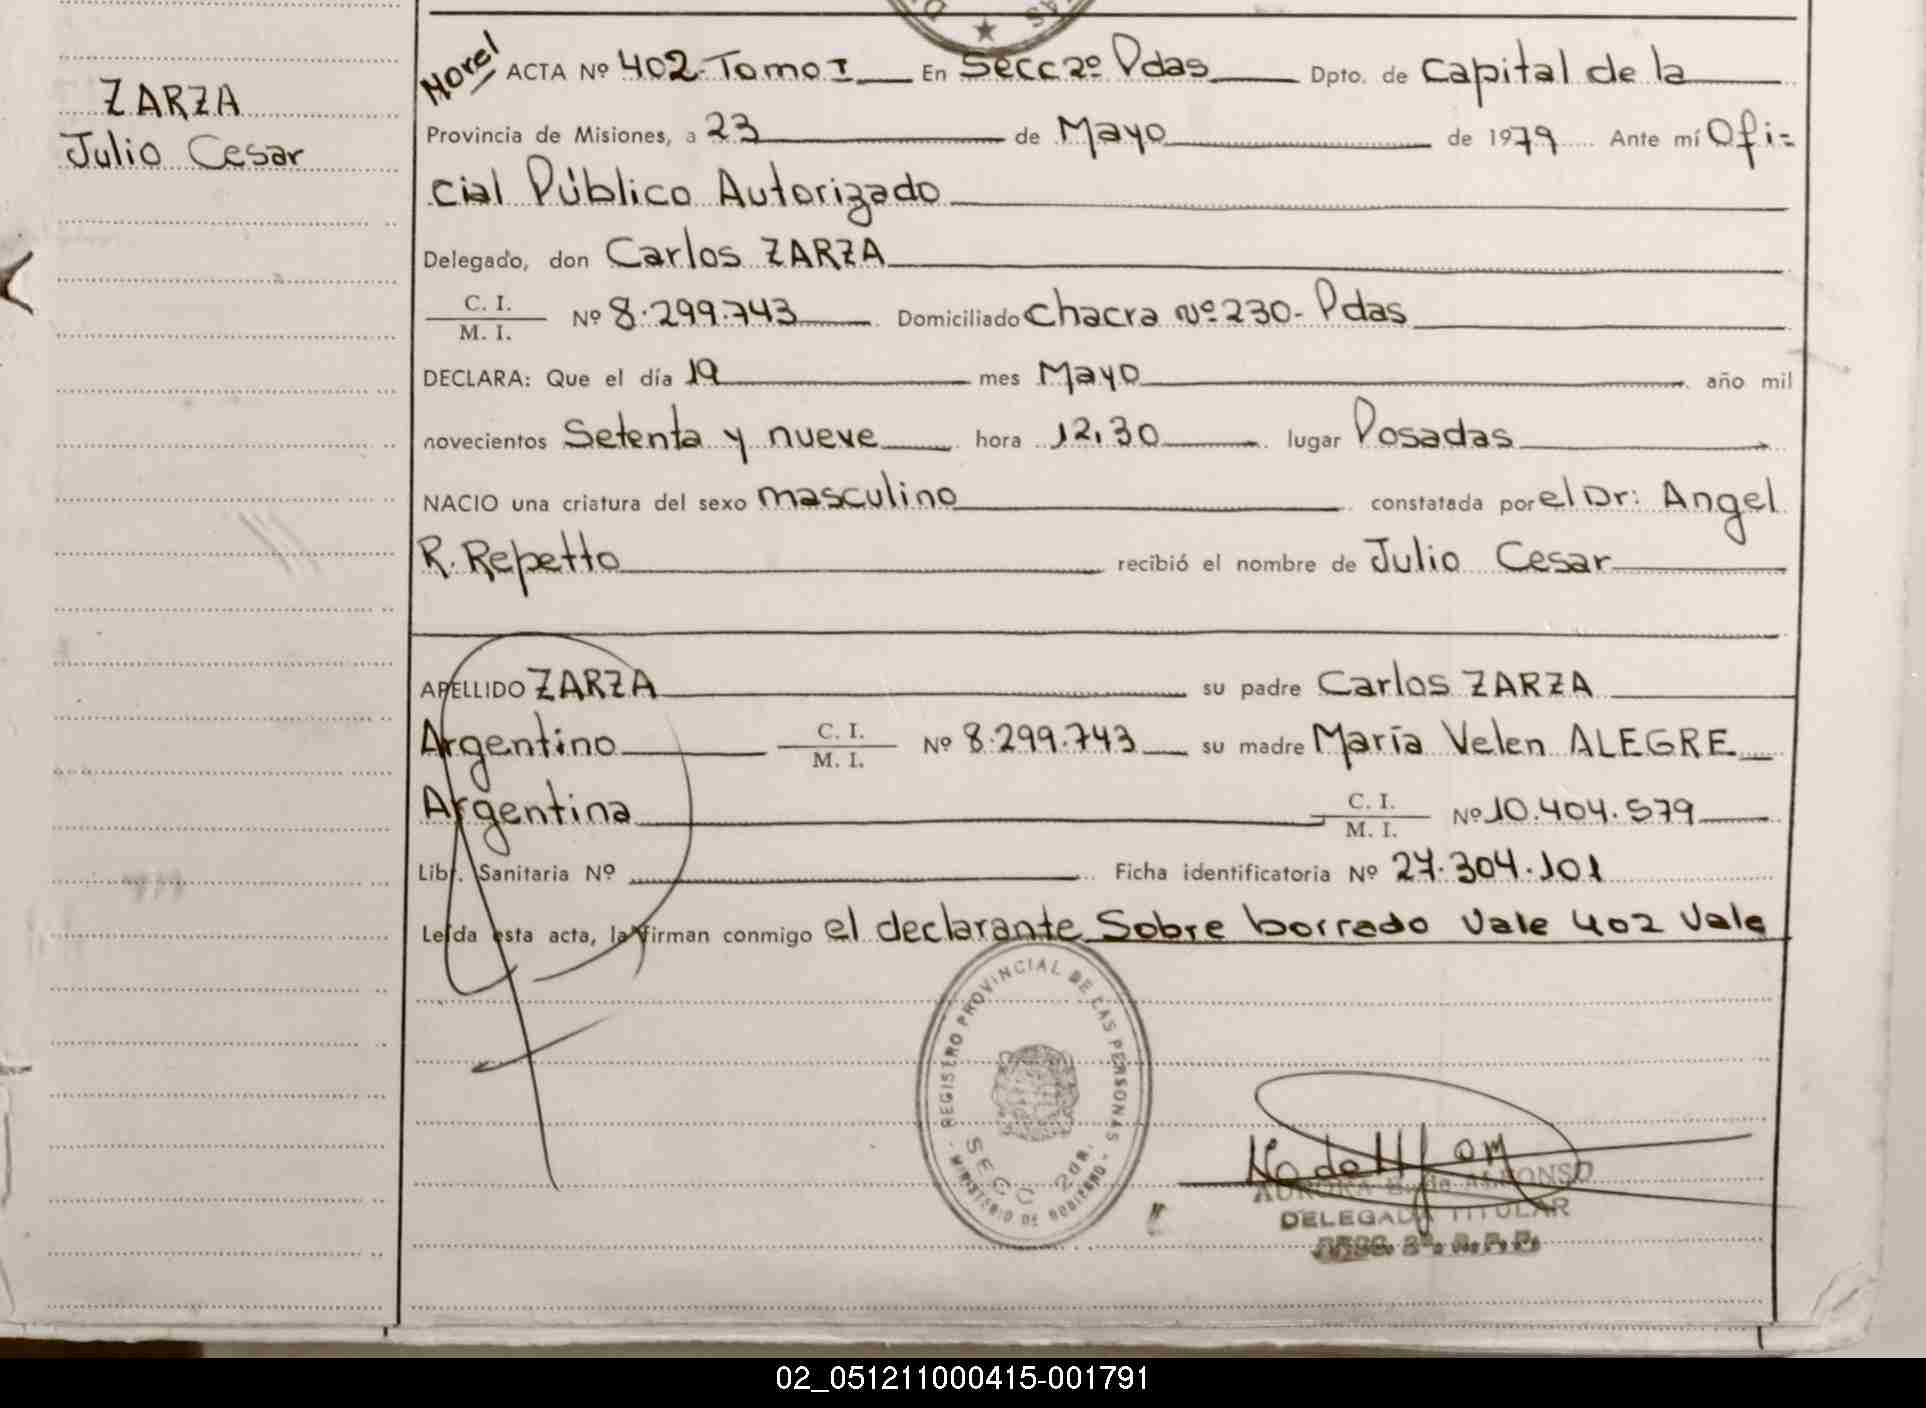 ZARZA
Julio Cesar
Morel
ACTA Nº 402-Tomo I En Secc 2º Pdas Dpto. de Capital de la
Provincia de Misiones, a 23 de Mayo de 1979 Ante mí Ofi=
cial Público Autorizado
Delegado, don Carlos ZARZA
C. I.
M. I. Nº 8.299.743 Domiciliado chacra Nº 230- Pdas
DECLARA: Que el día 19 mes Mayo año mil
novecientos Setenta y nueve hora 12,30 lugar Posadas
NACIO una criatura del sexo masculino constatada por el Dr: Angel
R. Repetto recibió el nombre de Julio Cesar
APELLIDO ZARZA su padre Carlos ZARZA
Argentino C. I.
M. I. Nº 8.299.743 su madre María Velen ALEGRE
Argentina C. I.
M. I. Nº 10.404.579
Libr. Sanitaria Nº Ficha identificatoria Nº 27.304.101
Leída esta acta, la firman conmigo el declarante Sobre borrado Vale 402 Vale
REGISTRO PROVINCIAL DE LAS PERSONAS
SECC 2DA.
MINISTERIO DE GOBIERNO
AURORA B. de ALFONSO
DELEGADA TITULAR
SECC. 2ª. R. P. P.
02_051211000415-001791